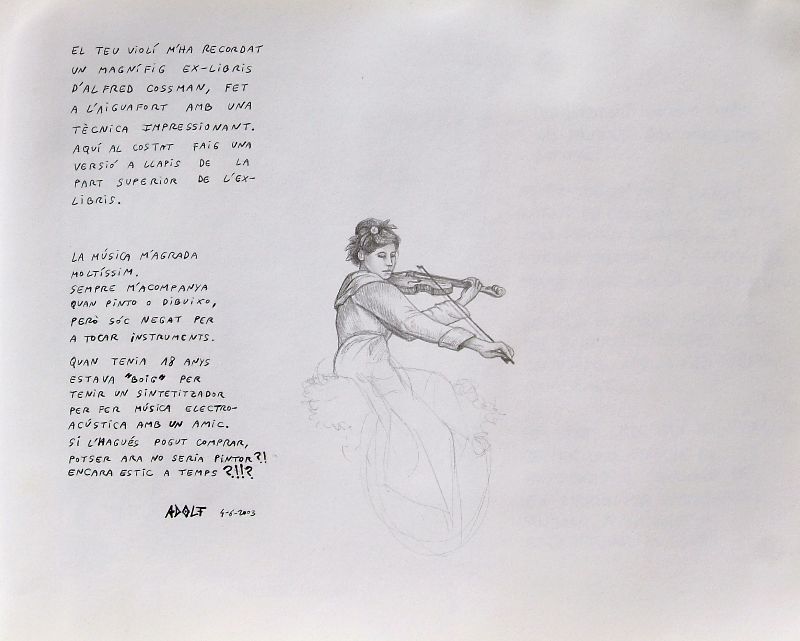 EL TEU VIOLÍ M'HA RECORDAT
UN MAGNÍFIG EX-LIBRIS
D'ALFRED COSSMAN, FET
A L'AIGUAFORT AMB UNA
TÈCNICA IMPRESSIONANT.
AQUÍ AL COSTAT FAIG UNA
VERSIÓ A LLAPIS DE LA
PART SUPERIOR DE L'EX-
LIBRIS.
LA MÚSICA M'AGRADA
MOLTÍSSIM.
SEMPRE M'ACOMPANYA
QUAN PINTO O DIBUIXO,
PERÒ SÓC NEGAT PER
A TOCAR INSTRUMENTS.
QUAN TENIA 18 ANYS
ESTAVA "BOIG" PER
TENIR UN SINTETITZADOR
PER FER MÚSICA ELECTRO-
ACÚSTICA AMB UN AMIC.
SI L'HAGUÉS POGUT COMPRAR,
POTSER ARA NO SERIA PINTOR?!
ENCARA ESTIC A TEMPS ?!!?
ADOLF 4-6-2003